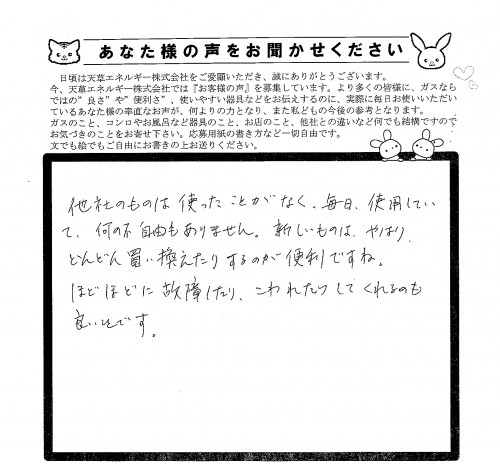 あなた様の声をお聞かせください
日頃は天草エネルギー株式会社をご愛顧いただき、誠にありがとうございます。
今、天草エネルギー株式会社では『お客様の声』を募集しています。より多くの皆様に、ガスなら
ではの”良さ”や”便利さ”、使いやすい器具などをお伝えするのに、実際に毎日お使いいただい
ているあなた様の率直なお声が、何よりの力となり、また私どもの今後の参考となります。
ガスのこと、コンロやお風呂など器具のこと、お店のこと、他社との違いなど何でも結構ですので
お気づきのことをお寄せ下さい。応募用紙の書き方など一切自由です。
文でも絵でもご自由にお書きの上お送りください。
他社のものは使ったことがなく、毎日、使用してい
て、何の不自由もありません。新しいものは、やはり、
どんどん買い換えたりするのが便利ですね。
ほどほどに故障したり、こわれたりしてくれるのも
良いです。